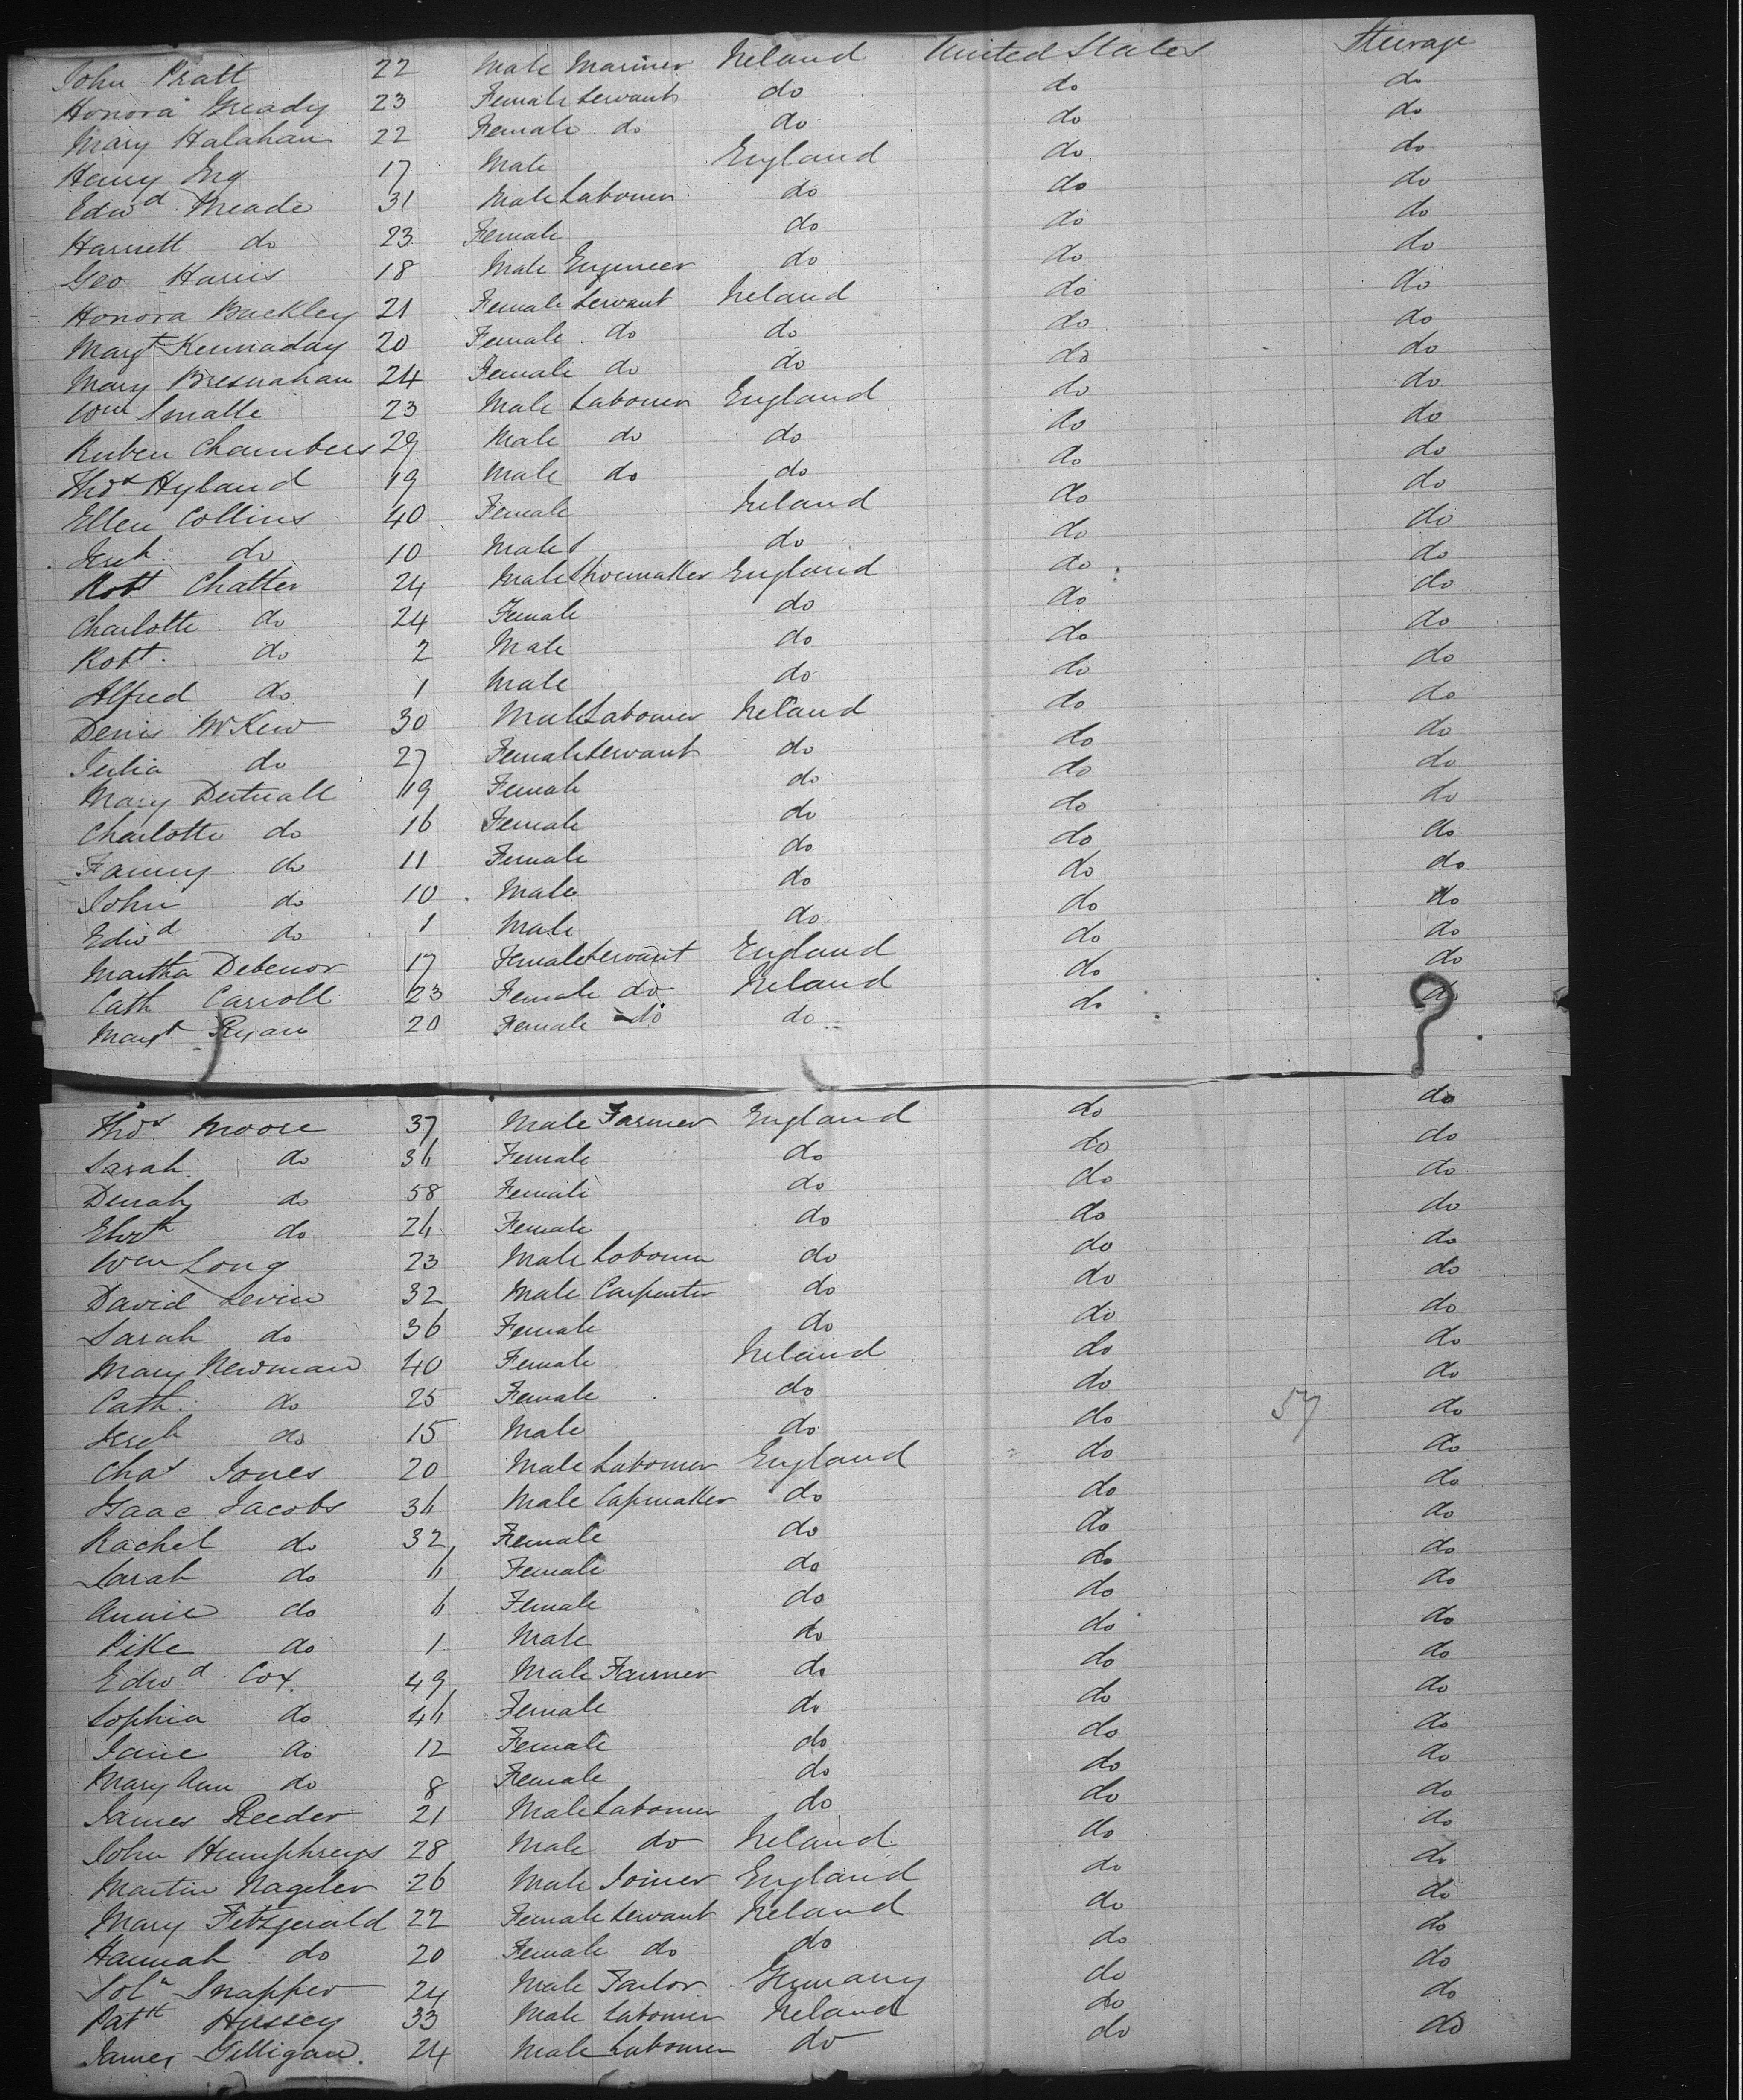 John Pratt 22 Male Mariner Ireland United States Steerage
Honora Gready 23 Female Servant do do do
Mary Halahan 22 Female do do do do
Henry Eng 17 Male England do do
Edwd Meade 31 Male Labourer do do do
Harriett do 23 Female do do do
Geo Harris 18 Male Engineer do do do
Honora Buckley 21 Female Servant Ireland do do
Margt Kennaday 20 Female do do do do
Mary Bresnahan 24 Female do do do do
Wm Smalle 23 Male Labourer England do do
Ruben Chambers 29 Male do do do do
Thos Hyland 19 Male do do do do
Ellen Collins 40 Female Ireland do do
do 10 Male do do do
Robt Chatter 24 Male Shoemaker England do do
Charlotte do 24 Female do do do
Robt. do 2 Male do do do
Alfred do 1 Male do do do
Denis McKew 30 Male Labourer Ireland do do
Julia do 27 Female Servant do do do
Mary 19 Female do do do
Charlotte do 16 Female do do do
Fanny do 11 Female do do do
John do 10 Male do do do
Edwd do 1 Male do do do
Martha Debenor 17 Female Servant England do do
Cath Carroll 23 Female do Ireland do do
Margt Ryan 20 Female do do do do
Thos Moore 37 Male Farmer England do do
Sarah do 36 Female do do do
Dinah do 58 Female do do do
Elizth do 26 Female do do do
Wm Long 23 Male Labourer do do do
David Levin 32 Male Carpenter do do do
Sarah do 36 Female do do do
Mary Newman 40 Female Ireland do do
Cath. do 25 Female do do do
do 15 Male do do 57 do
Chas Jones 20 Male Labourer England do do
Isaac Jacobs 36 Male Capmaker do do do
Rachel do 32 Female do do do
Sarah do 6 Female do do do
Annie do 6 Female do do do
Pike do 1 Male do do do
Edwd Cox 49 Male Farmer do do do
Sophia do 46 Female do do do
Jane do 12 Female do do do
Mary Ann do 8 Female do do do
James Reeder 21 Male Labourer do do do
John Humphreys 28 Male do Ireland do do
Martin Nageler 26 Male Joiner England do do
Mary Fitzgerald 22 Female Servant Ireland do do
Hannah do 20 Female do do do do
Soln Snapper 24 Male Tailor Germany do do
Patk Hussey 33 Male Labourer Ireland do do
James Gilligan. 24 Male Labourer do do do